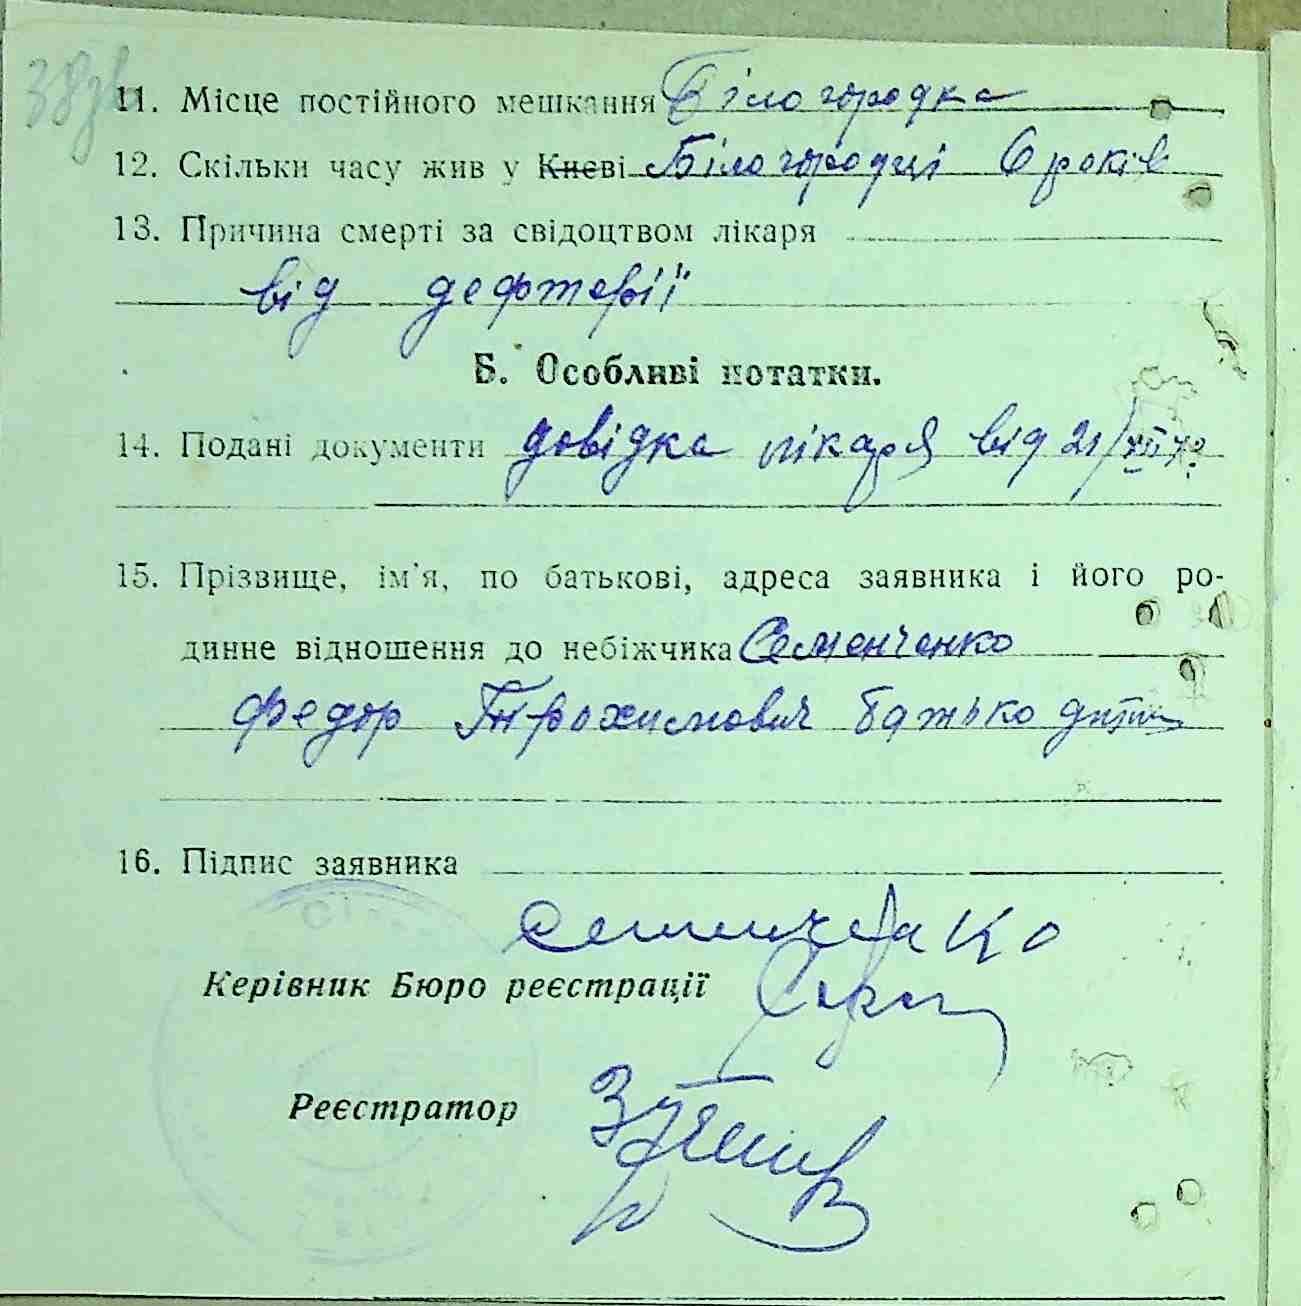 38зв
11. Місце постійного мешкання Білогородка
12. Скільки часу жив у Києві Білогородці 6 років
13. Причина смерті за свідоцтвом лікаря
від дефтерії
Б. Особливі нотатки.
14. Подані документи довідка лікаря від 21/
15. Прізвище, ім'я, по батькові, адреса заявника і його ро-
динне відношення до небіжчика Семенченко
Федор Трохимович батько дитини
16. Підпис заявника
Семенченко
Керівник Бюро реєстрації
Реєстратор